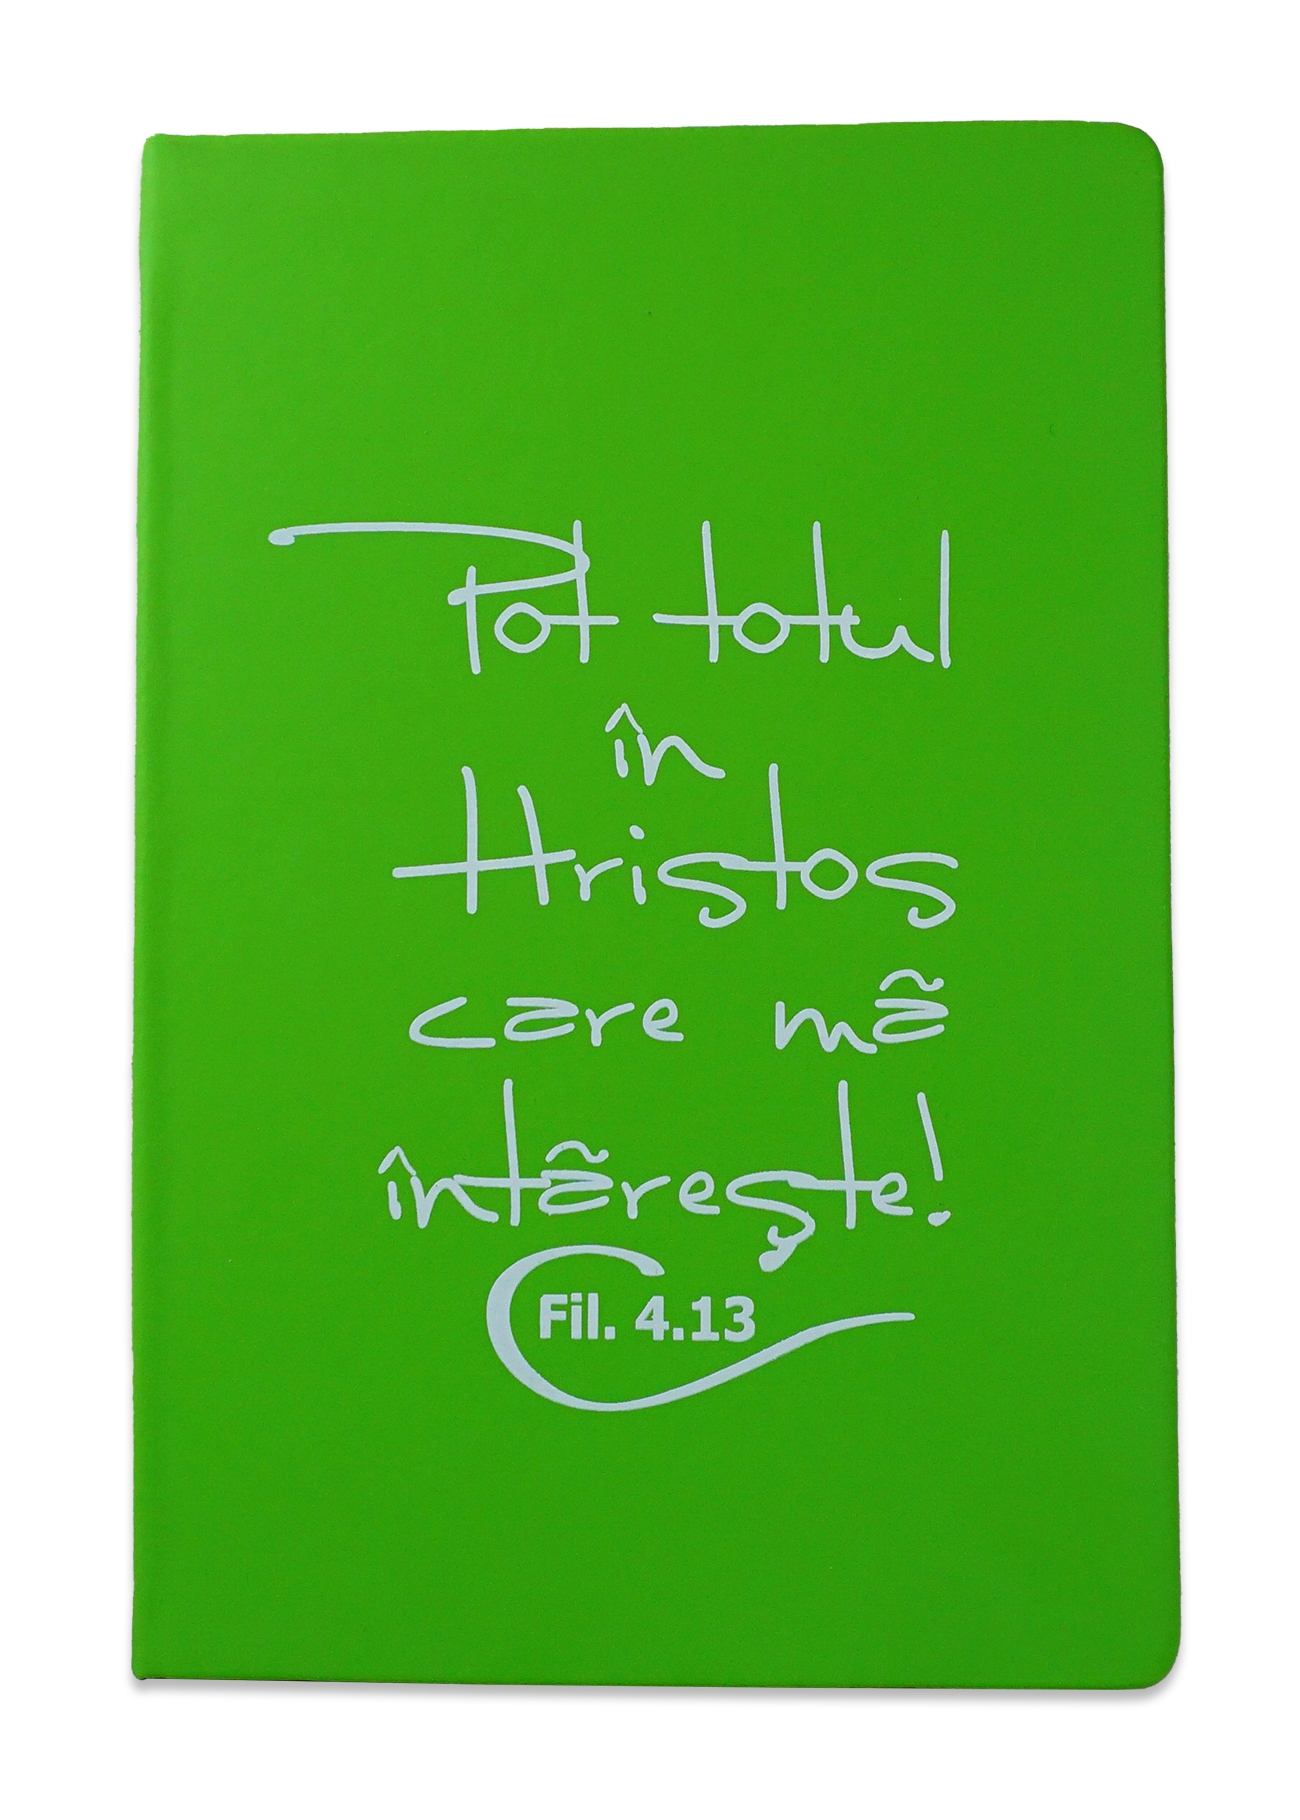 Pot totul
în
Hristos
care mã
întãreşte!
Fil. 4.13